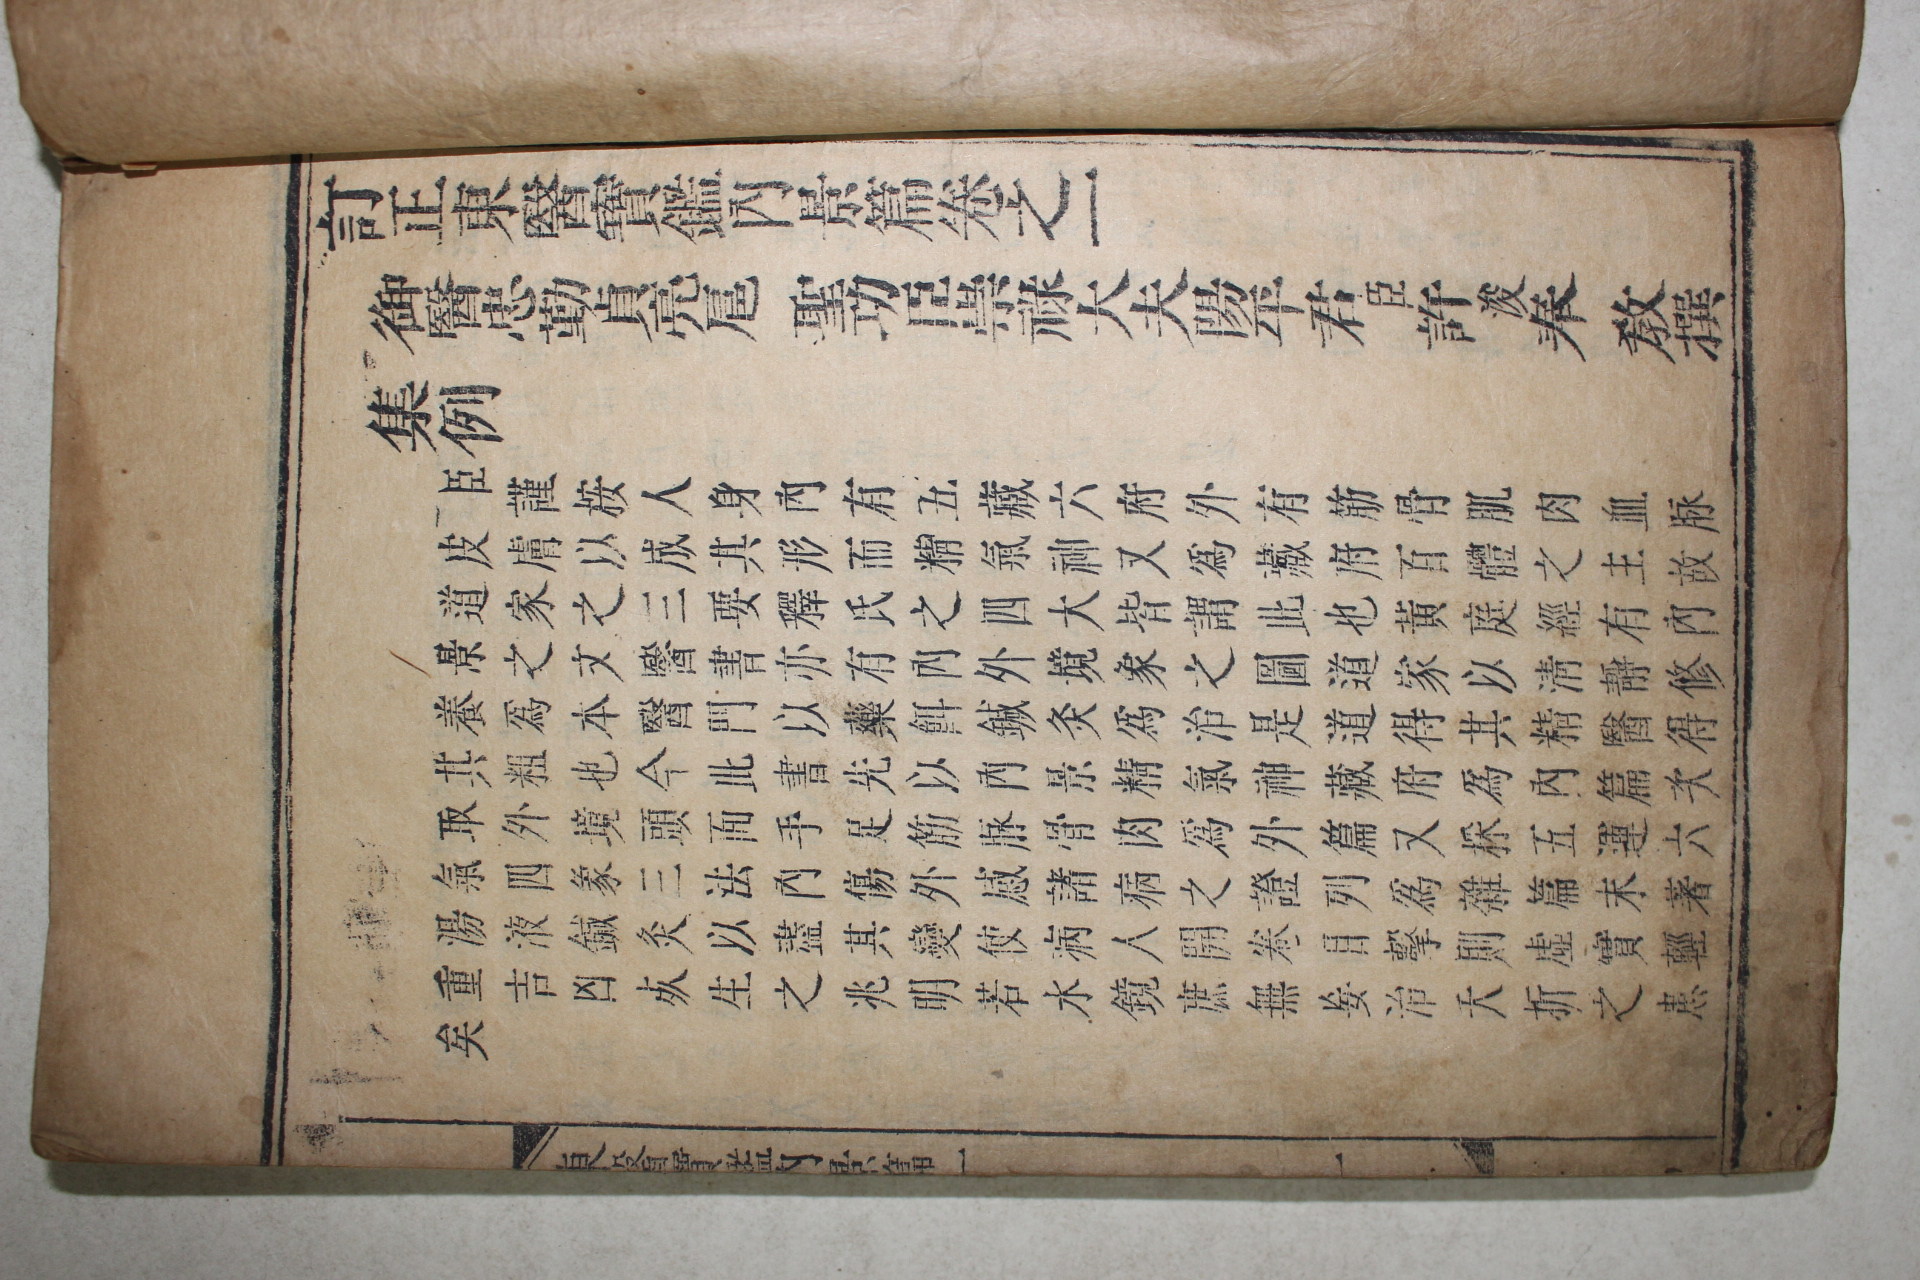 訂正東醫寶鑑內景篇卷之一
御醫忠勤貞亮扈 聖功臣崇祿大夫陽平君臣許浚奉 教撰
集例
臣謹按人身內有五藏六府外有筋骨肌肉血脉
皮膚以成其形而精氣神又爲藏府百體之主故
道家之三要釋氏之四大皆謂此也黃庭經有內
景之文醫書亦有內外境象之圖道家以清靜修
養爲本醫門以藥餌鍼灸爲治是道得其精醫得
其粗也今此書先以內景精氣神藏府爲內篇次
取外境頭面手足筋脉骨肉爲外篇又採五運六
氣四象三法內傷外感諸病之證列爲雜篇末著
湯液鍼灸以盡其變使病人開卷目擊則虛實輕
重吉凶死生之兆明若水鏡庶無妄治夭折之患
矣
東醫寶鑑內景篇一 一